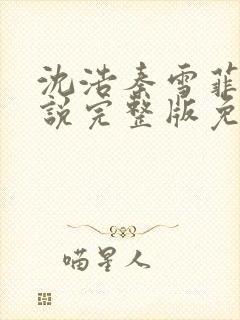 沈浩秦雪菲
說完整版免
喵星人